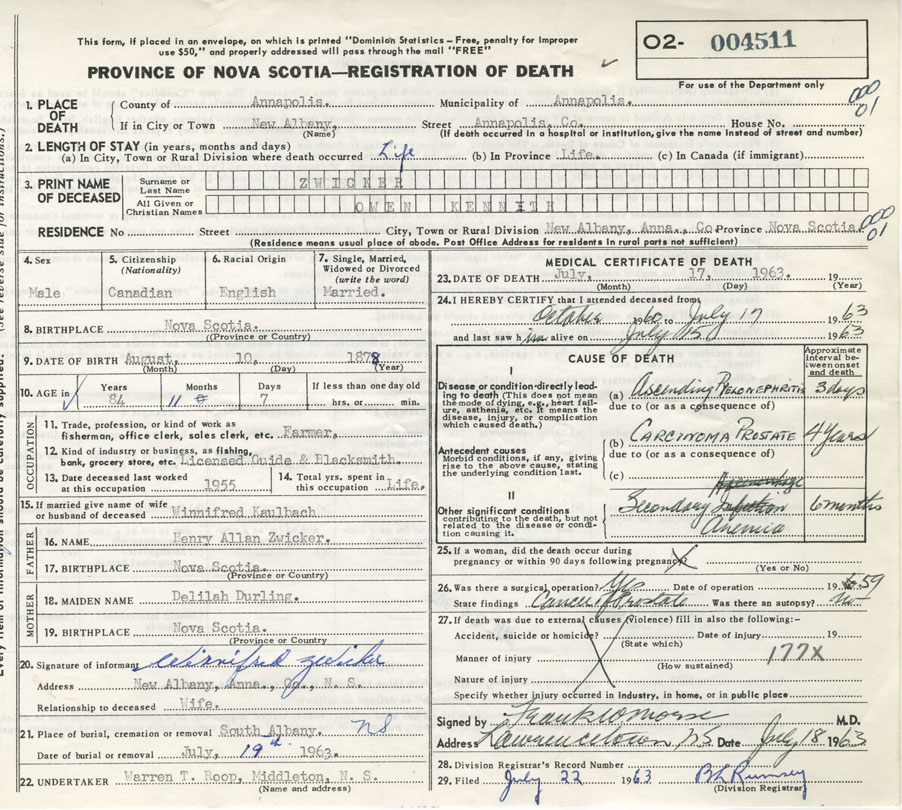 This form, if placed in an envelope, on which is printed "Dominion Statistics – Free, penalty for improper
use $50," and properly addressed will pass through the mail "FREE"
O2- 004511
For use of the Department only
PROVINCE OF NOVA SCOTIA—REGISTRATION OF DEATH ✓
000
01
1. PLACE OF DEATH
County of Annapolis. Municipality of Annapolis.
If in City or Town New Albany, Street Annapolis. Co. House No.
(Name) (If death occurred in a hospital or institution, give the name instead of street and number)
2. LENGTH OF STAY (in years, months and days)
(a) In City, Town or Rural Division where death occurred Life (b) In Province Life. (c) In Canada (if immigrant)
3. PRINT NAME OF DECEASED
Surname or Last Name ZWICKER
All Given or Christian Names OWEN KENNITH
RESIDENCE No Street City, Town or Rural Division New Albany, Anna., Co. Province Nova Scotia.
000
01
(Residence means usual place of abode. Post Office Address for residents in rural parts not sufficient)
4. Sex 5. Citizenship (Nationality) 6. Racial Origin 7. Single, Married, Widowed or Divorced (write the word)
Male Canadian English Married.
8. BIRTHPLACE Nova Scotia.
(Province or Country)
9. DATE OF BIRTH August, 10, 1878
(Month) (Day) (Year)
10. AGE in Years Months Days If less than one day old
84 11 7 hrs. or min.
OCCUPATION
11. Trade, profession, or kind of work as
fisherman, office worker, sales clerk, etc. Farmer,
12. Kind of industry or business, as fishing,
bank, grocery store, etc. Licensed Guide & Blacksmith.
13. Date deceased last worked at this occupation 1955
14. Total yrs. spent in this occupation Life.
15. If married give name of wife
or husband of deceased Winnifred Kaulbach
FATHER
16. NAME Henry Allan Zwicker.
17. BIRTHPLACE Nova Scotia.
(Province or Country)
MOTHER
18. MAIDEN NAME Delilah Durling.
19. BIRTHPLACE Nova Scotia.
(Province or Country)
20. Signature of informant Winnifred Zwicker
Address New Albany, Anna., Co., N. S.
Relationship to deceased Wife.
21. Place of burial, cremation or removal South Albany. NS
Date of burial or removal July, 19th 1963.
22. UNDERTAKER Warren T. Roop, Middleton, N. S.
(Name and address)
MEDICAL CERTIFICATE OF DEATH
23. DATE OF DEATH July, 17, 1963. 19
(Month) (Day) (Year)
24. I HEREBY CERTIFY that I attended deceased from
October 1960 to July 17 1963
and last saw him alive on July 15 1963
CAUSE OF DEATH
Approximate interval between onset and death
I
Disease or condition directly leading
to death (This does not mean
the mode of dying, e.g., heart failure,
asthenia, etc. It means the
disease, injury, or complication
which caused death.)
(a) Ascending Pyelonephritis 3 days
due to (or as a consequence of)
Antecedent causes
Morbid conditions, if any, giving
rise to the above cause, stating
the underlying condition last.
(b) CARCINOMA PROSTATE 4 Years
due to (or as a consequence of)
(c)
II
Other significant conditions
contributing to the death, but not
related to the disease or condition
causing it.
Secondary Infection 6 months
Anemia
25. If a woman, did the death occur during
pregnancy or within 90 days following pregnancy? (Yes or No)
26. Was there a surgical operation? Yes Date of operation 19 59
State findings Cancer of Prostate Was there an autopsy? no
27. If death was due to external causes (violence) fill in also the following:–
Accident, suicide or homicide? Date of injury 19
(State which)
Manner of injury 177X
(How sustained)
Nature of injury
Specify whether injury occurred in industry, in home, or in public place
Signed by Frank W Morse M.D.
Address Lawrencetown NS Date July 18 1963
28. Division Registrar's Record Number
29. Filed July 22 1963 B L Rumsey
(Division Registrar)